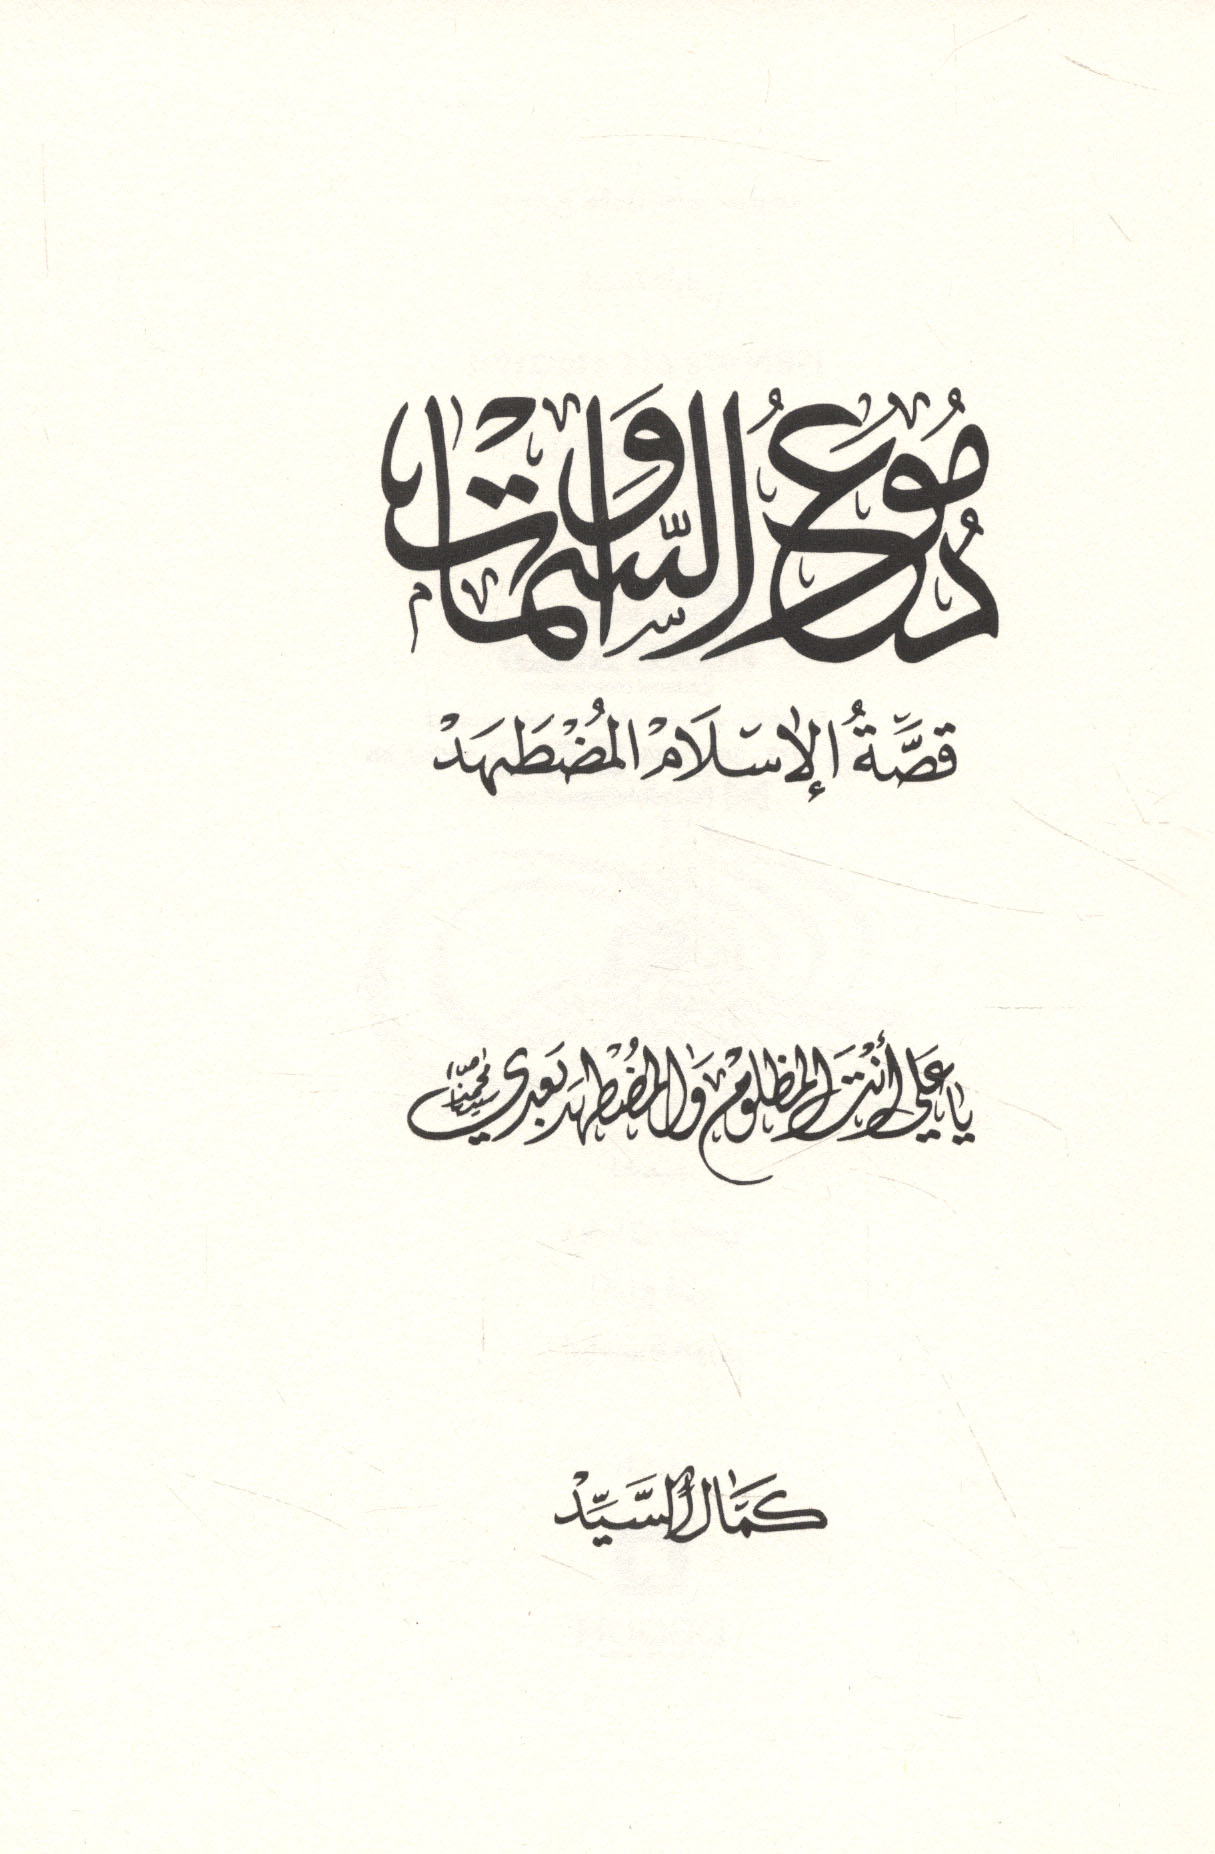 دُمُوعُ السَّمَاوَات
قِصَّةُ الإِسْلَامْ المُضْطَهَدْ
يَا عَلي أَنْتَ المظلومْ وَالمُضْطهَد بَعدي
كَمَال السَّيِّدْ